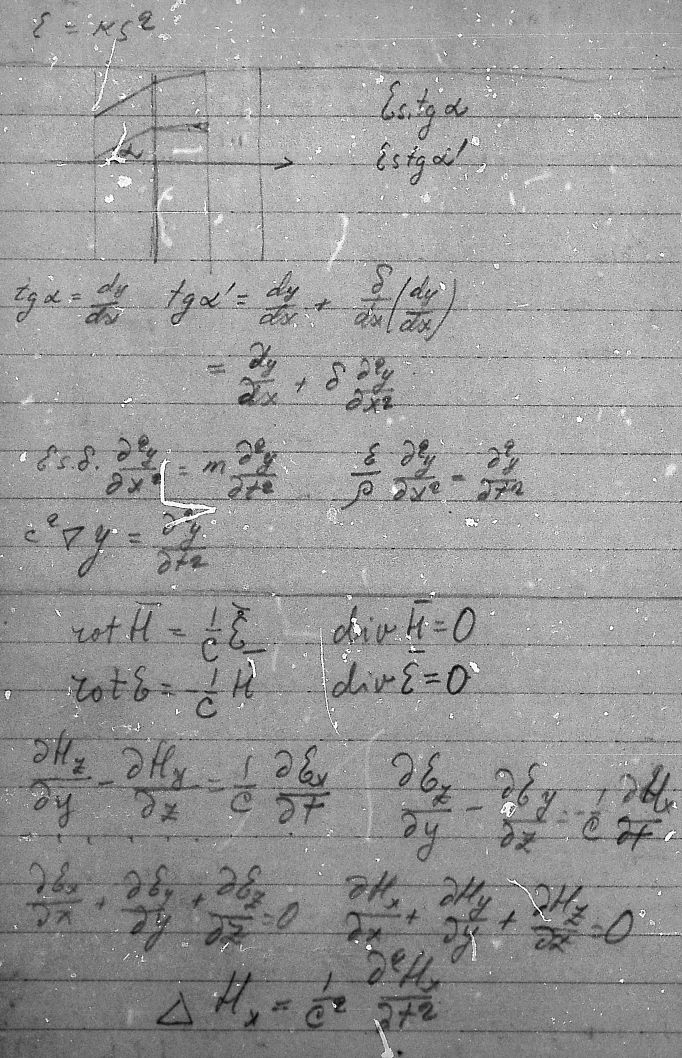 ε = κς²
Es.tgα
Estgα'
α
tgα = dy/dx   tgα' = dy/dx + δ/dx (dy/dx)
= dy/dx + δ ∂²y/∂x²
Es.δ. ∂²y/∂x² = m ∂²y/∂t²   ε/ρ ∂²y/∂x² = ∂²y/∂t²
c² ∇ y = ∂²y/∂t²
rot H̅ = 1/c Ė   div H̅ = 0
rot ε = -1/c Ḣ   div ε̅ = 0
∂H_z/∂y - ∂H_y/∂z = 1/c ∂ε_x/∂t   ∂ε_z/∂y - ∂ε_y/∂z = -1/c ∂H_x/∂t
. . . . .
∂ε_x/∂x + ∂ε_y/∂y + ∂ε_z/∂z = 0   ∂H_x/∂x + ∂H_y/∂y + ∂H_z/∂z = 0
△ H_x = 1/c² ∂²H_x/∂t²